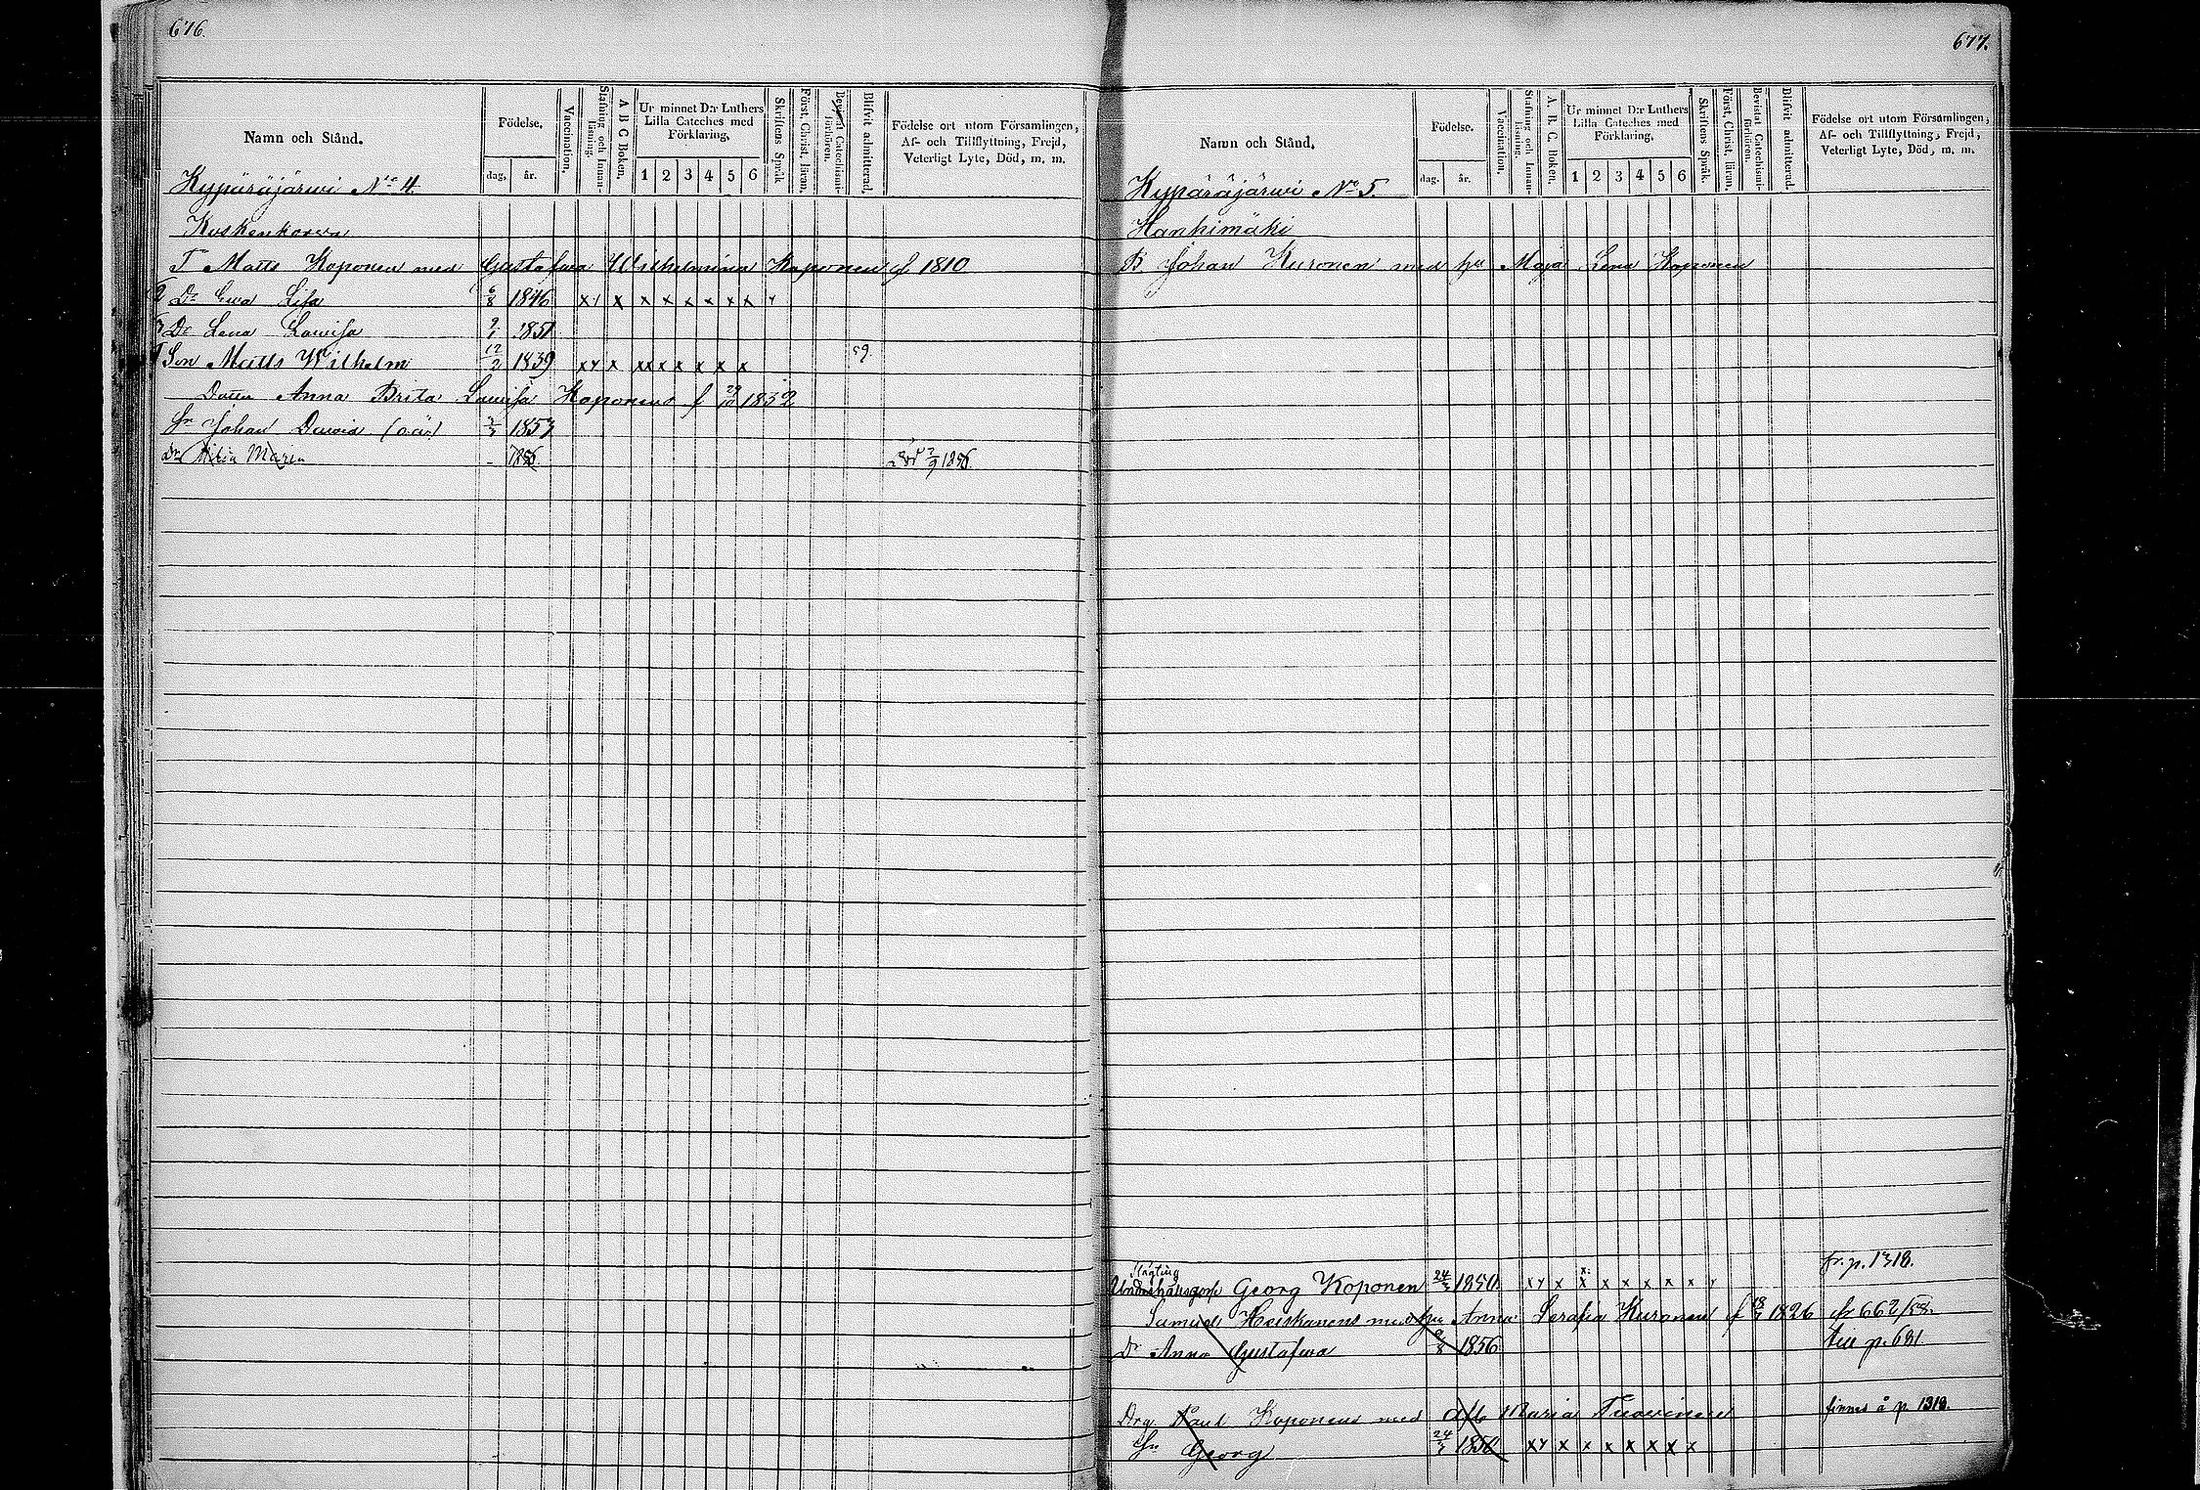 676.
Namn och Stånd.
Födelse.
dag.
år.
Vaccination.
Stafning och Innan-läsning.
A B C Boken.
Ur minnet D:r Luthers Lilla Cateches med Förklaring.
1 2 3 4 5 6
Skriftens Språk
Först. Christ. läran.
Bevistat Catechismi-förhören.
Blifvit admitterad.
Födelse ort utom Församlingen,
Af- och Tillflyttning, Frejd,
Veterligt Lyte, Död, m. m.
Kypäräjärwi No 4.
Koskenkorva
T Matts Koponen med Gustafwa Wilhelmina Koponen f. 1810
2 Dr Ewa Lisa 6/8 1846 x x x x x x x x x
3 Dr Lena Lowisa 9/1 1851
1 Son Matts Wilhelm 12/2 1839 x x x xx x x x x x 59.
Dotter Anna Brita Lowisa Koponens f 29/10 1832
Sn Johan Dawid (o.ä.) 1853
Dr Maria - 1856 Död 1856
677.
Namn och Stånd.
Födelse.
dag.
år.
Vaccination.
Stafning och Innan-läsning.
A. B. C. Boken.
Ur minnet D:r Luthers Lilla Cateches med Förklaring.
1 2 3 4 5 6
Skriftens Språk.
Först. Christ. läran.
Bevistat Catechismi-förhören.
Blifvit admitterad.
Födelse ort utom Församlingen,
Af- och Tillflyttning, Frejd,
Veterligt Lyte, Död, m. m.
Kypäräjärwi No 5.
Hanhimäki
B Johan Kuronen med hu Maja Lena Koponen
fr. p. 1318.
Georg Koponen 24/3 1850. x x x x x x x x x x
Samuel Heiskanens med hu Anna Serafia Kuronen f 1826 fr 662/58.
Dr Anna Gustafwa 1856 till p. 681
Drg Paul Koponens med Maria Tuovinen finnes å p. 1318.
Sn Georg 24/3 1850 x x x x x x x x x